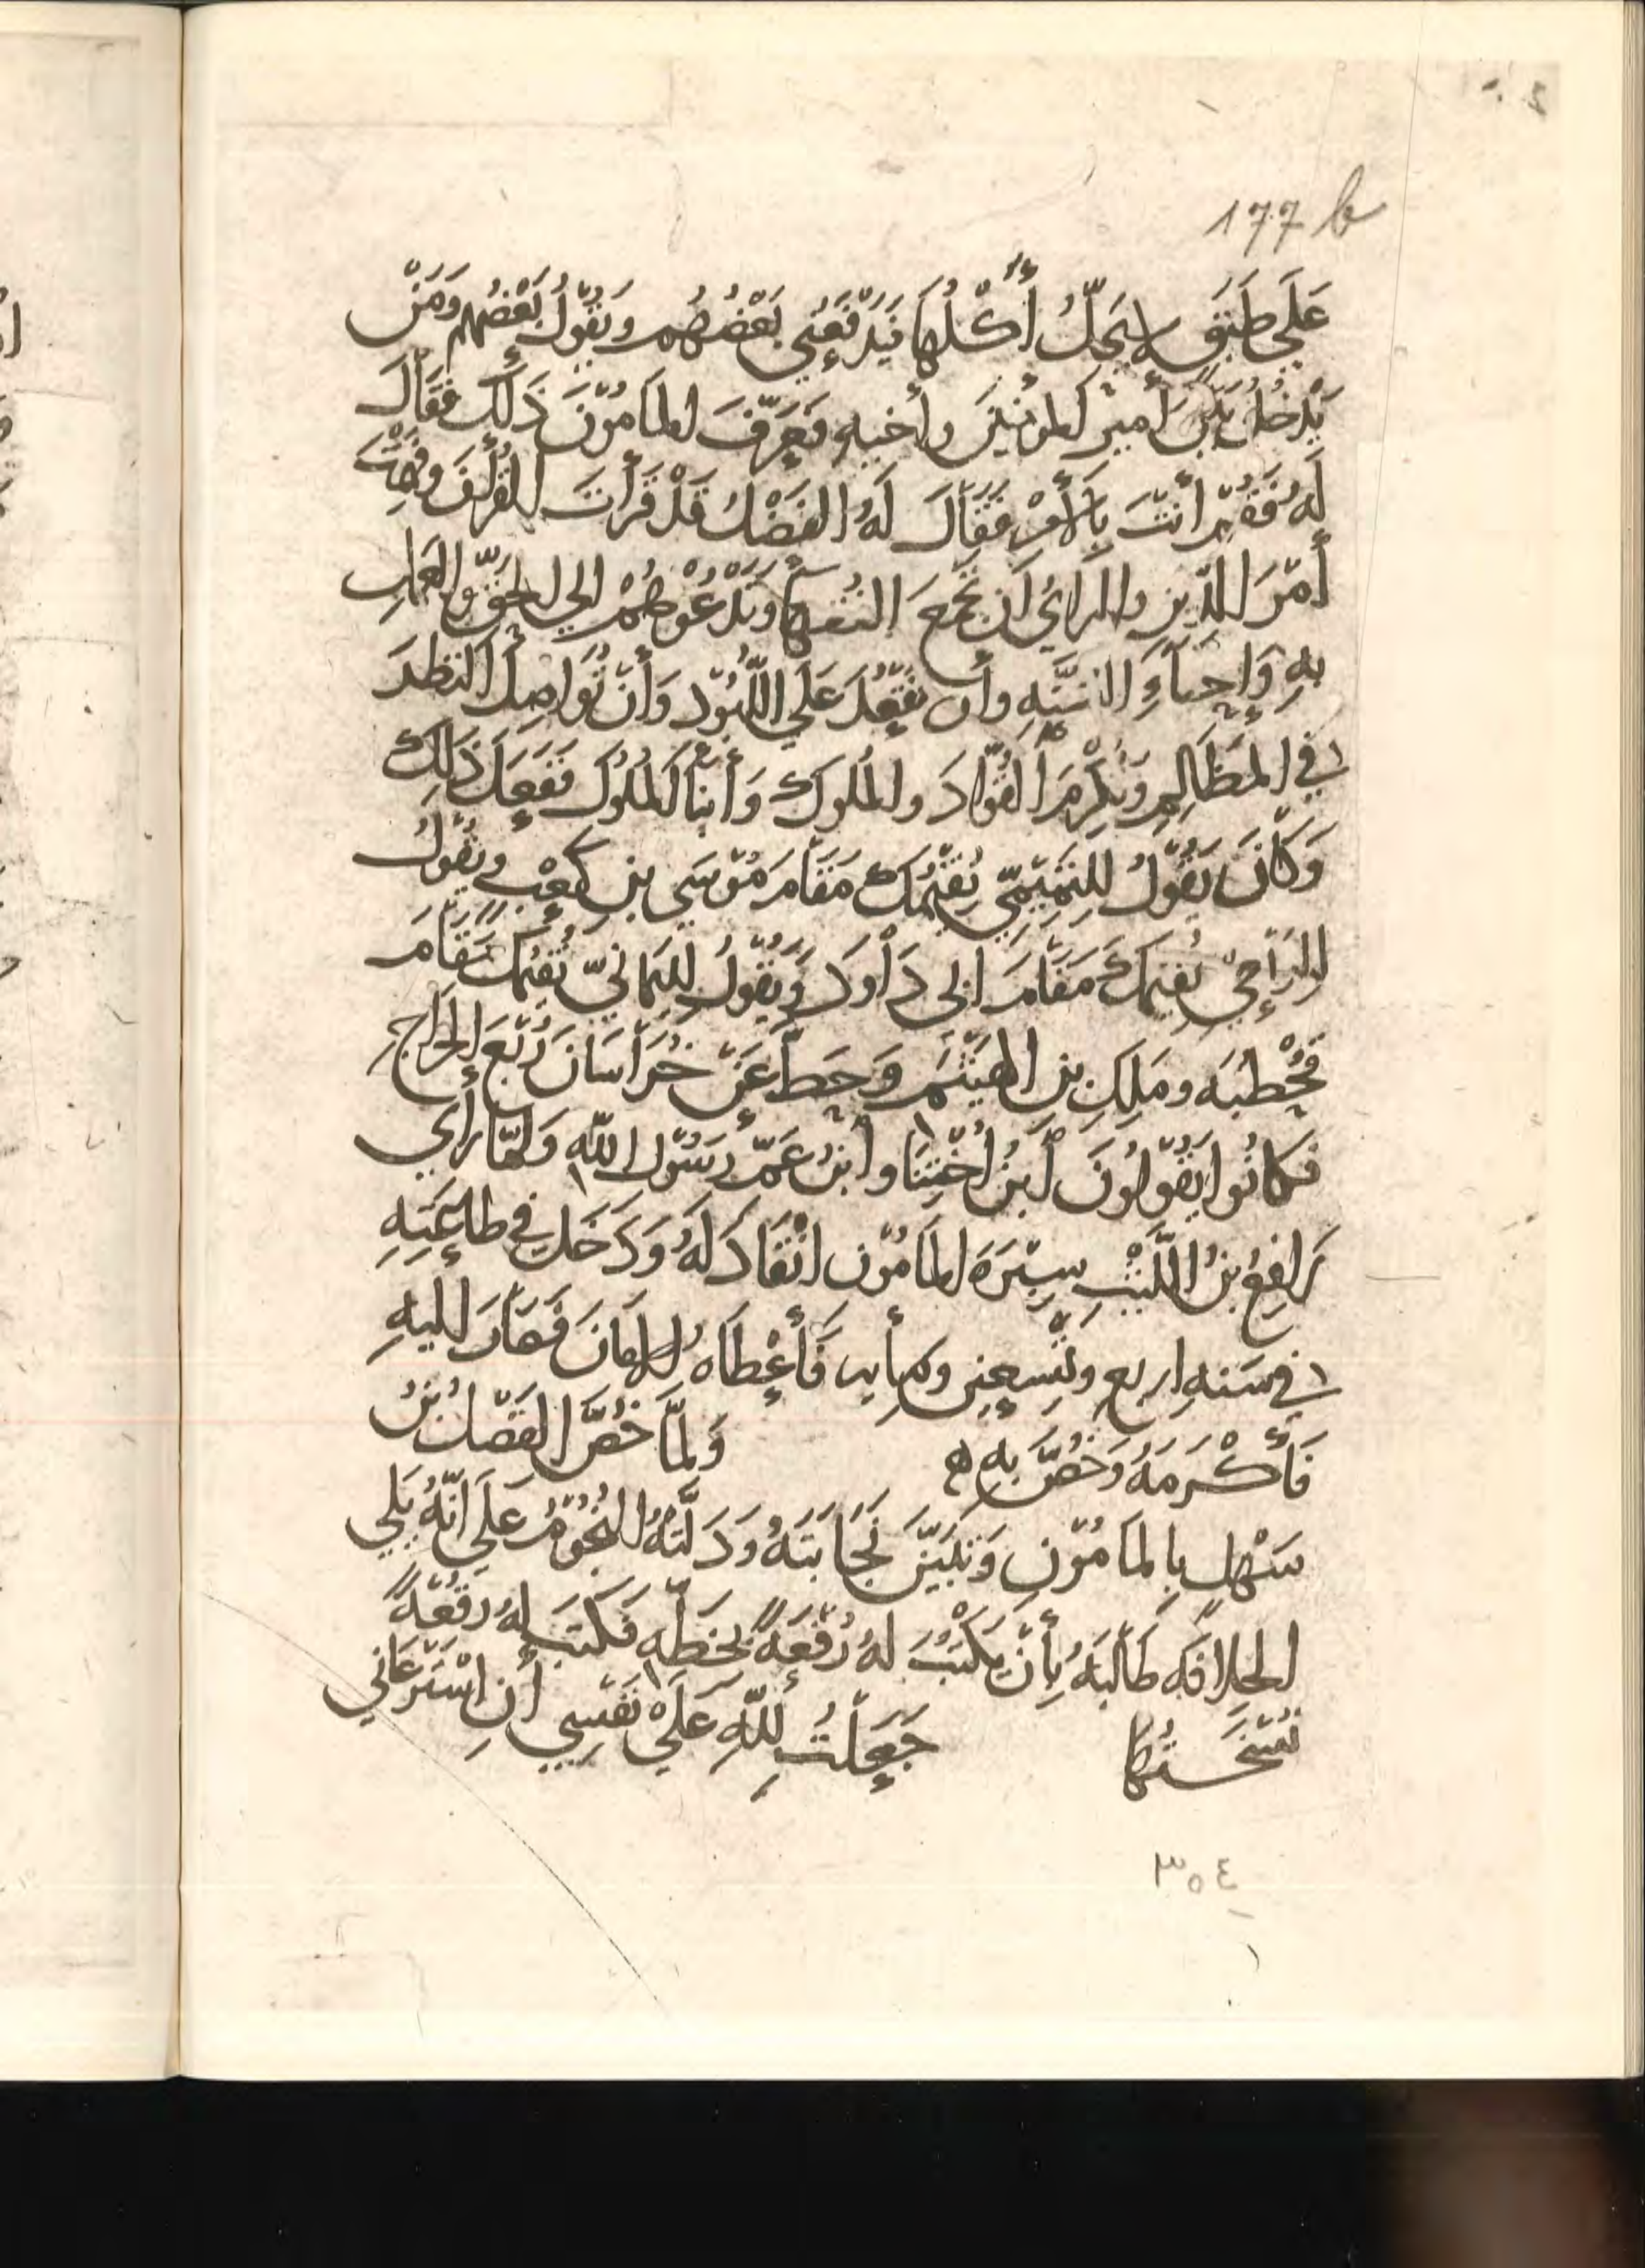 177 b
عَلَي طَبَقٍ لا يَحِلُّ أَكْلُهَا فَيَدْفَعُنِي بَعْضُهُم وَيَقُولُ بَعْضُهُم وَمَنْ
يَدْخُلُ بَيْنَ أَمِيرِ المُؤمِنِينَ وأَخِيهِ فَعَرَّفَ المَامُوْنَ ذَلِكَ فَقَالَ
لَهُ فَقُمْ أَنْتَ بِالأَمْرِ فَقَالَ لَهُ الفَضْلُ قَدْ قَرَأْتَ القُرْآنَ وَفَهِمْتَ
أَمْرَ الدِّينِ والرائ ان تَجْمَعَ الفُقَهَآءَ وتَدْعُوهُمْ الي الحَقِّ والعَمَلِ
بِهِ وَإِحْيَاءِ السُّنَّةِ وأَن تَقْعُدَ عَلَي اللُّبُوْدِ وَأَنْ تُوَاصِلَ النَظَرَ
في المَظَالِمِ وَتُكْرِمَ القُوَّادَ والمُلُوكَ وَأَبْنَاءَ المُلُوْكِ فَفَعَلَ ذَلِكَ
وَكَانَ يَقُوْلُ لِلتَمِيْمِيِّ نُقِيْمُكَ مَقَامَ مُوْسَي بنِ كَعْبٍ وَيَقُوْلُ
للرَبَعِيِّ نُقِيمُكَ مَقَامَ ابي دَاوُدَ وَيَقُوْلُ لِليَمَانِيِّ نُقِيْمُكَ مَقَامَ
قَحْطَبَه ومَلِكِ بنِ الهَيْثَمِ وَحَطَّ عَنْ خُرَاسَانَ رُبْعَ الخَرَاجِ
فكَانُوا يَقُوْلُونَ أَبنُ أُخْتِنَا وأَبنُ عَمِّ رَسُوْلِ اللهِ وَلمَّا رَأَي
رَافِعُ بنُ اللَّيْثِ سِيْرَةَ المَامُوْن انْقَادَ لَهُ وَدَخَلَ في طَاعَتِهِ
في سَنَهِ اربع وتِسْعِينَ ومايه فَأَعْطَاهُ الامَانَ فَصَارَ اليهِ
فَأَكْرَمَهُ وَخُصَّ بِهِ ه وَلمَّا خُصَّ الفَضْلُ بنُ
سَهْلٍ بِالمَامُوْنِ وَتَبَيَّنَ نَجَابَتَهُ وَدَلَّتْهُ النُجُوْمُ عَلَي انَّهُ يَلِي
الخِلَافَه طَالَبَهُ بِأَنْ يَكْتُبَ لهُ رُقْعَةً بِخَطِّهِ فَكَتَبَ لهُ رُقْعَةً
نُسْخَتُهَا جَعَلْتُ لِلّهِ عَلَيْ نَفْسِي أَن اسْتَرْعَاني
٣٥٤